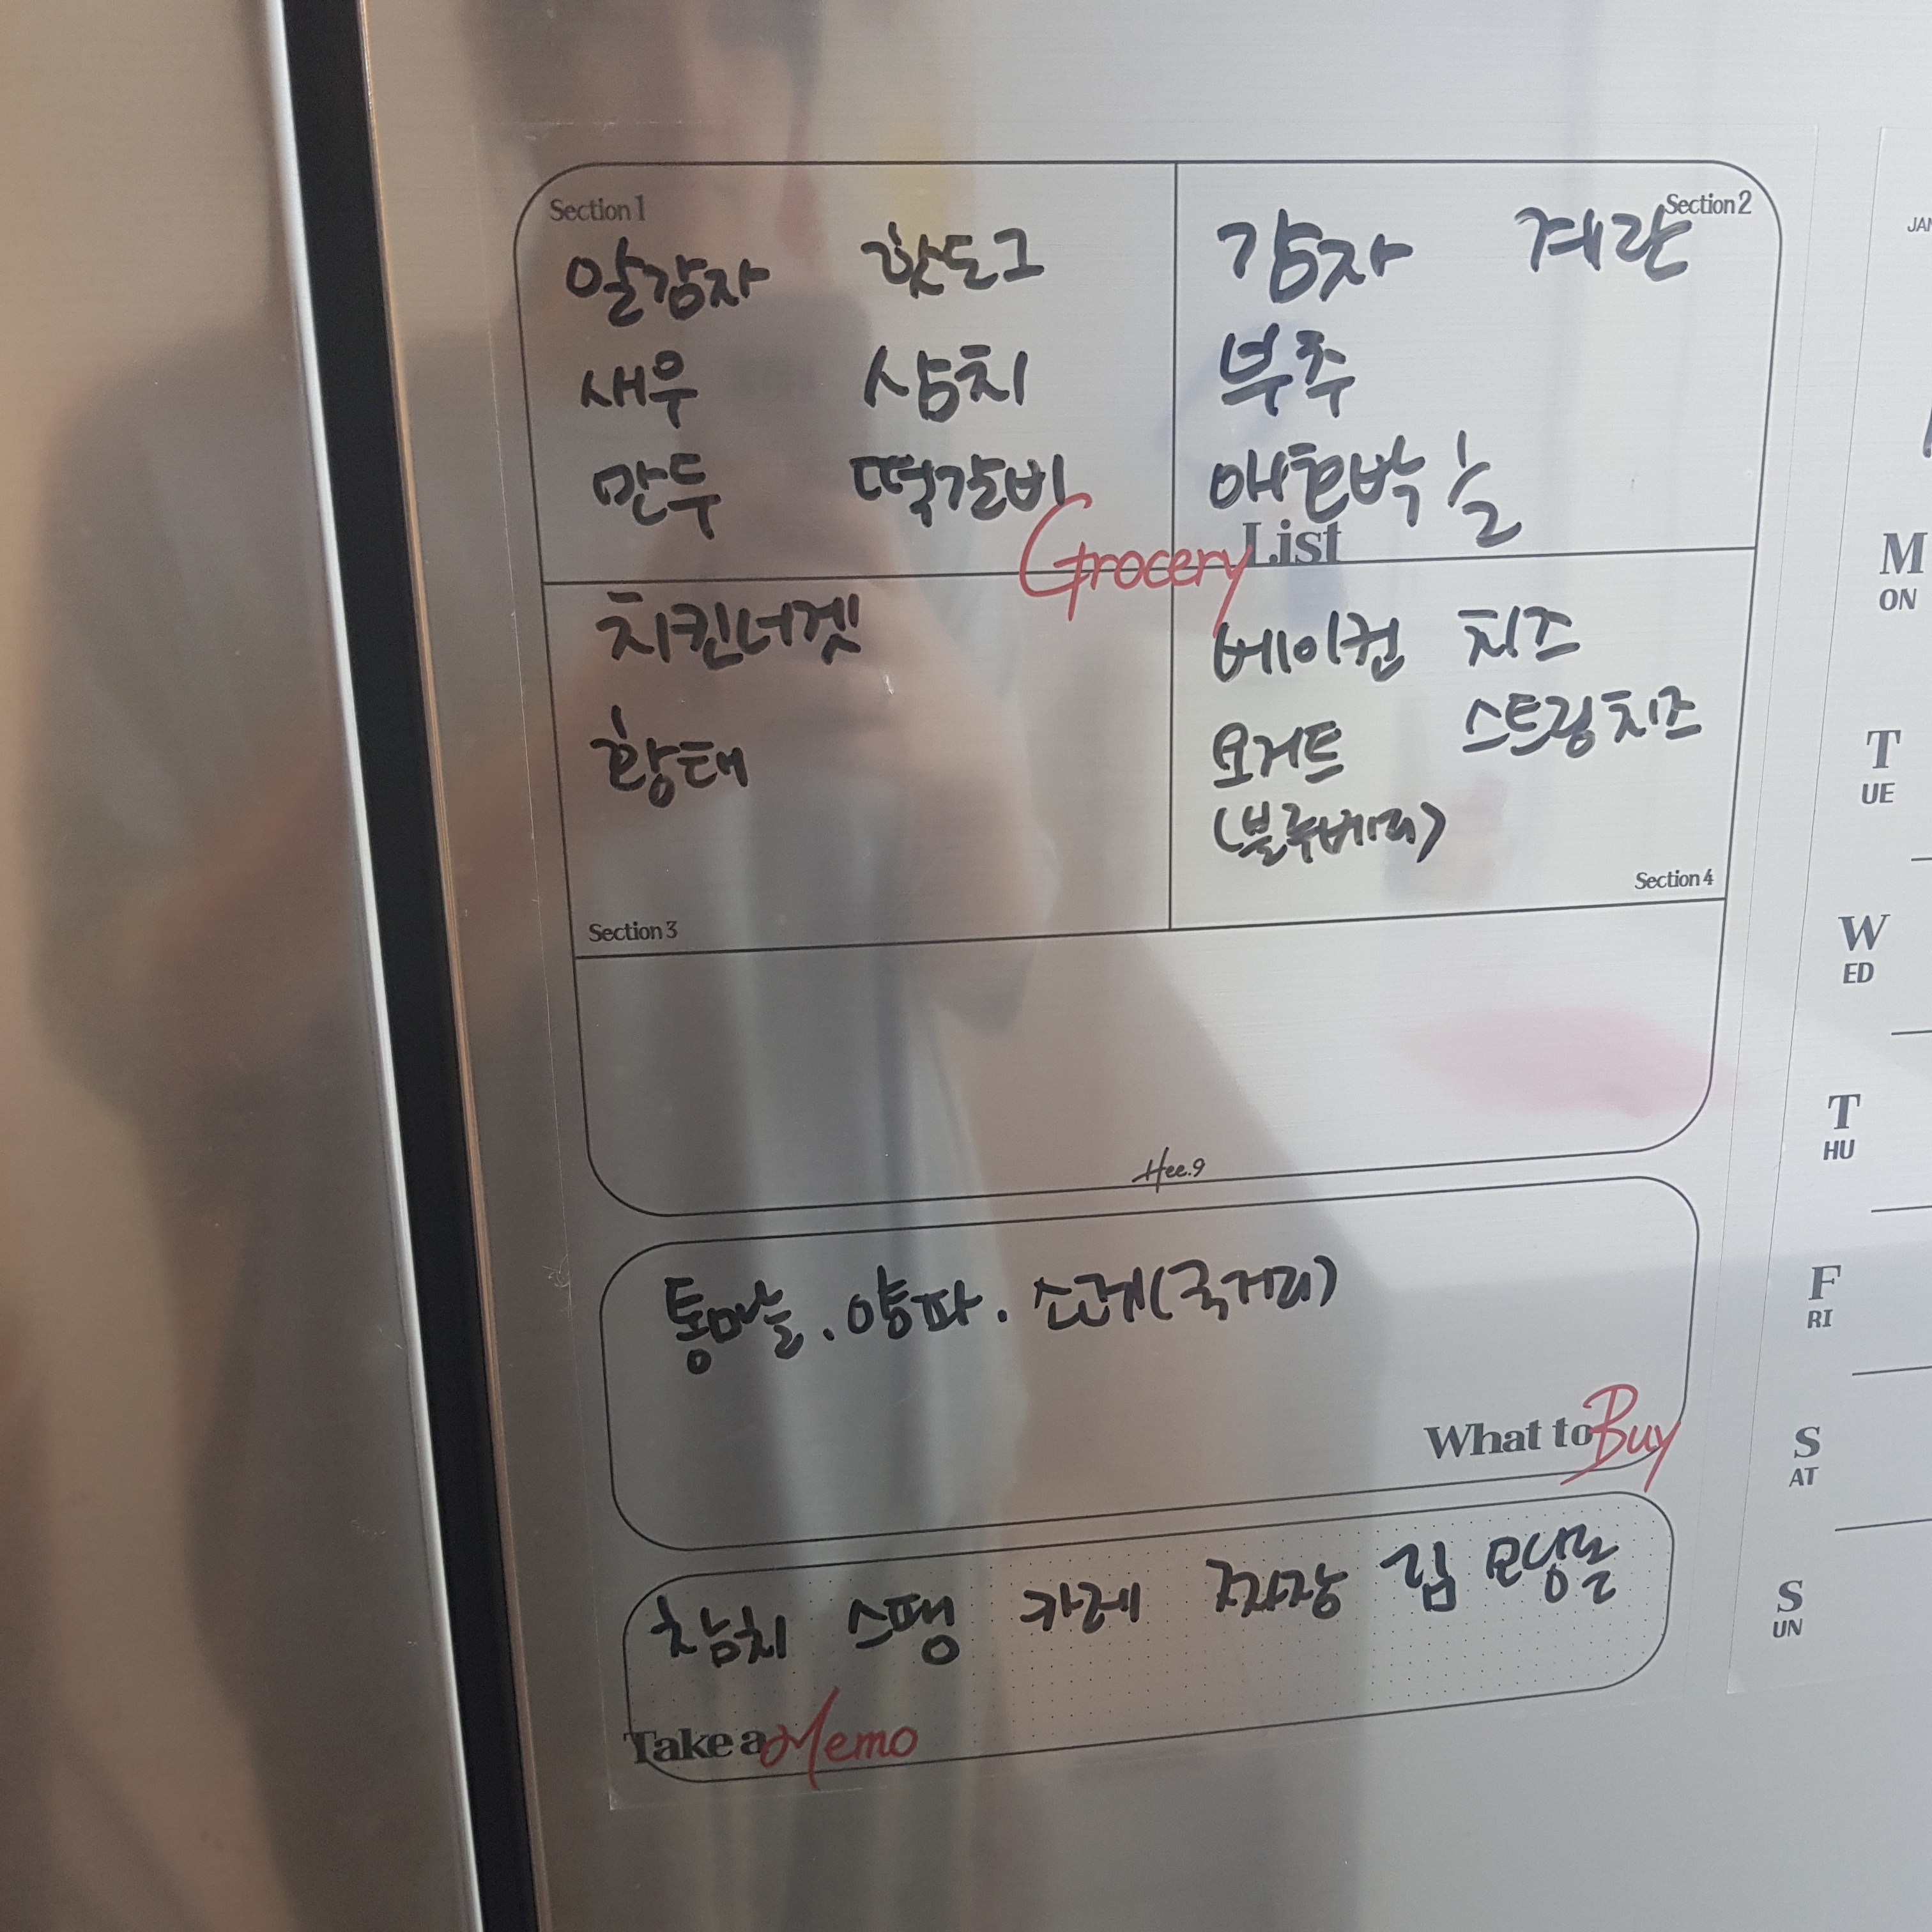 Section 1
알감자 핫도그
새우 삼치
만두 떡갈비
Section 2
감자 계란
부추
애호박 1/2
Grocery List
치킨너겟
황태
Section 3
베이컨 치즈
요거트 스트링치즈
(블루베리)
Section 4
Hee.9
통마늘. 양파. 소고기(국거리)
What to Buy
참치 스팸 카레 짜장 김
Take a Memo
JAN
M
ON
T
UE
W
ED
T
HU
F
RI
S
AT
S
UN